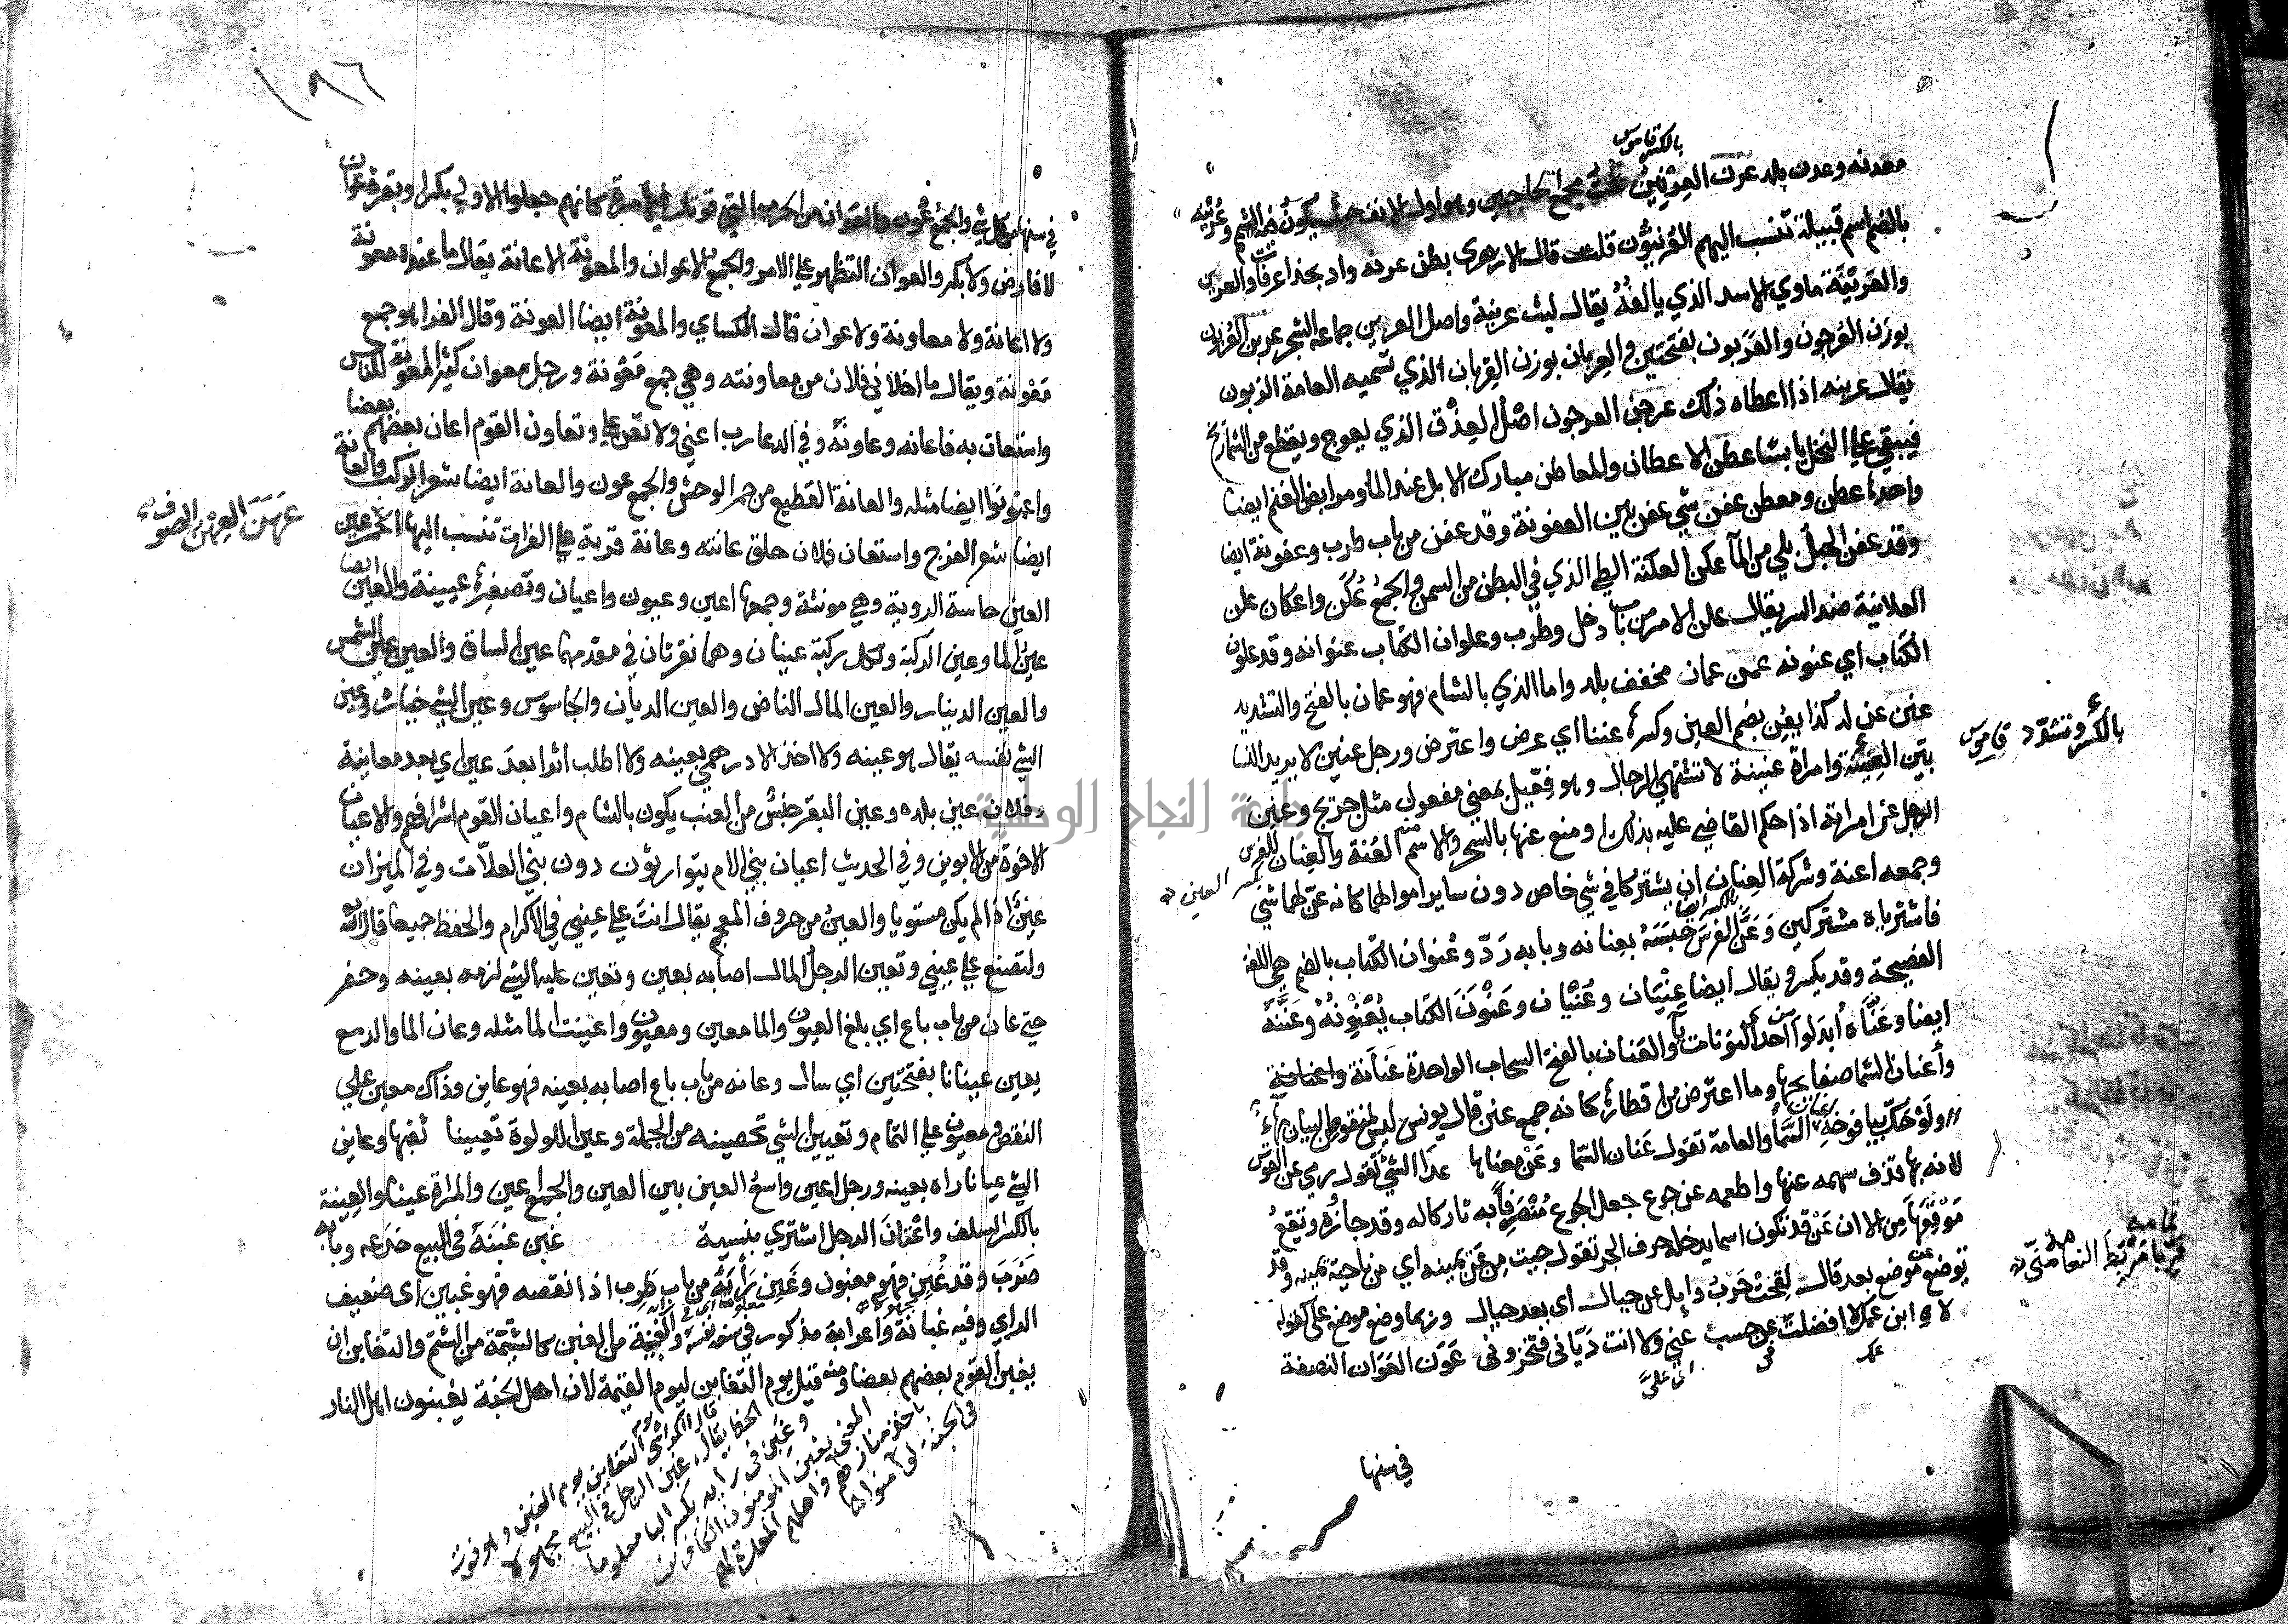 بالكسر قاموس
معدنه وعدن بلد عرن العرنين تحت مجمع الحاجبين وهو اول الانف حيث يكون فيه الشم وعرينة
بالضم اسم قبيلة تنسب اليهم العرنيون قلت قال الازهري بطن عرنه واد بحذا عرفات والعرين
والعرينة ماوي الاسد الذي يالفه يقال ليث عرينة واصل العرين جماعة الشجر عربن العربون
بوزن العرجون والعربون بفتحتين والعربان بوزن القربان الذي تسميه العامة الربون
يقال عربنه اذا اعطاه ذلك عرجن العرجون اصل العذق الذي يعوج ويقطع من الشماريخ
فيبقي علي النخل يابسا عطن الاعطان والمعاطن مبارك الابل عند الما ومرابض الغنم ايضا
واحدها عطن ومعطن عفن شي عفن بين العفونة وقد عفن من باب طرب وعفونة ايضا
وقد عفن الحبل بلي من المآ عكن العكنة الطي الذي في البطن من السمن والجمع عكن واعكان علن
العلانية ضد السر يقال علن الامر من باب دخل وطرب وعلوان الكتاب عنوانه وقد علون
الكتاب اي عنونه عمن عمان مخفف بلد واما الذي بالشام فهو عمان بالفتح والتشديد
عنن عن له كذا يعن بضم العين وكسرها عننا اي عرض واعترض ورجل عنين لا يريد النسا
بالكسر وتشدد قاموس
بين العنة وامراة عنينة لا تشتهي الرجال وهو فعيل بمعني مفعول مثل جريح وعنن
الرجل عن امراته اذا حكم القاضي عليه بذلك او منع عنها بالسحر والاسم منه العنة والعنان للفرس
بكسر العين
وجمعه اعنة وشركة العنان ان يشتركا في شي خاص دون ساير اموالهما كانه عن لهما شي
بالكسر ايضا
فاشترياه مشتركين وعن الفرس حبسه بعنانه وبابه رد وعنوان الكتاب بالضم هي اللغة
الفصيحة وقد يكسر ويقال ايضا عنيان وعنيان وعنون الكتاب يعنونه وعننه
ايضا وعناه ابدلوا من احدى النونات يآ والعنان بالفتح السحاب الواحدة عنانة واعنان
وأعنان السما صفايحها وما اعترض من اقطارها كانه جمع عنن قال يونس ليس لمنقوص البيان بهآء
ولو حك بيافوخه عنان السمآ والعامة تقول عنان السما وعن معناها عدا الشي تقول رمي عن القوس
لانه بها قذف سهمه عنها واطعمه عن جوع جعل الجوع منصرفا به تاركا له وقد جاوزه وتقع
من موقعها الا ان عن قد تكون اسما يدخله حرف الجر تقول جيت من عن يمينه اي من ناحية يمينه وقد
توضع عن موضع بعد قال لقحت حرب وايل عن حيال اي بعد حيال وربما وضع موضع علي كقوله
تمامه
قربا مربط النعامة مني
لاه ابن عمك لا افضلت في حسب عني ولا انت دياني فتخزوني عون العوان النصفة
اي علي
في سنها
١٨٦
في سنها من كل شي والجمع عون والعوان من الحرب التي قوتل فيها مرة كانهم جعلوا الاولي بكرا وبقرة عوان
لا فارض ولا بكر والعون الظهير علي الامر والجمع الاعوان والمعونة الاعانة يقال ما عنده معونة
ولا اعانة ولا معاونة ولا عوان قال الكساي والمعونة ايضا العونة وقال الفرا هو جمع
معونة ويقال ما اخلاني فلان من معاونته وهي جمع معونة ورجل معوان كثير المعونة للناس
واستعان به فاعانه وعاونه وفي الدعا رب اعني ولا تعن علي وتعاون القوم اعان بعضهم بعضا
واعتونوا ايضا مثله والعانة القطيع من حمر الوحش والجمع عون والعانة ايضا شعر الركب والعانة
ايضا شعر الفرج واستعان فلان حلق عانته وعانة قرية علي الفرات تنسب اليها الخمر عين
عهن العهن الصوف
العين حاسة الروية وهي مونثة وجمعها اعين وعيون واعيان وتصغيرها عيينة والعين ايضا
عين الما وعين الركبة ولكل ركبة عينان وهما نقرتان في مقدمهما عند الساق والعين عين الشمس
والعين الدينار والعين المال الناض والعين الديان والجاسوس وعين الشي خياره وعين
الشي نفسه يقال هو عينه ولا اخذ الا درهمي بعينه ولا اطلب اثرا بعد عين اي بعد معاينة
وفلان عين بلده وعين البقر جنس من العنب يكون بالشام واعيان القوم اشرافهم والاعيان
الاخوة من الابوين وفي الحديث اعيان بني الام يتوارثون دون بني العلات وفي الميزان
عين اذا لم يكن مستويا والعين من حروف المعجم يقال انت علي عيني في الاكرام والحفظ جميعا قال الله
ولتصنع علي عيني وتعين الرجل المال اصابه بعين وتعين عليه الشي لزمه بعينه وحفر
حتي عان من باب باع اي بلغ العيون والما معين ومعيون واعينت الما مثله وعان الما والدمع
يعين عينانا بفتحتين اي سال وعانه من باب باع اصابه بعينه فهو عاين وذاك معين علي
النقص ومعيون علي التمام وتعيين الشي تخصيصه من الجملة وعين اللولوة تعيينا ثقبها وعاين
الشي عيانا راه بعينه ورجل اعين واسع العين بين العين والجمع عين والمراة عينا والعينة
بالكسر السلف واعتان الرجل اشتري بنسية غبن غبنه في البيع خدعه وبابه
ضرب وقد غبن فهو مغبون وغبن رأيه من باب طرب اذا نقصه فهو غبين اي ضعيف
الراي وفيه غبانة واعرابه مذكور في سفه نفسه والغبينة من الغبن كالشتيمة من الشتم والتغابن ان
يغبن القوم بعضهم بعضا ومنه قيل يوم التغابن ليوم القيمة لان اهل الجنة يغبنون اهل النار